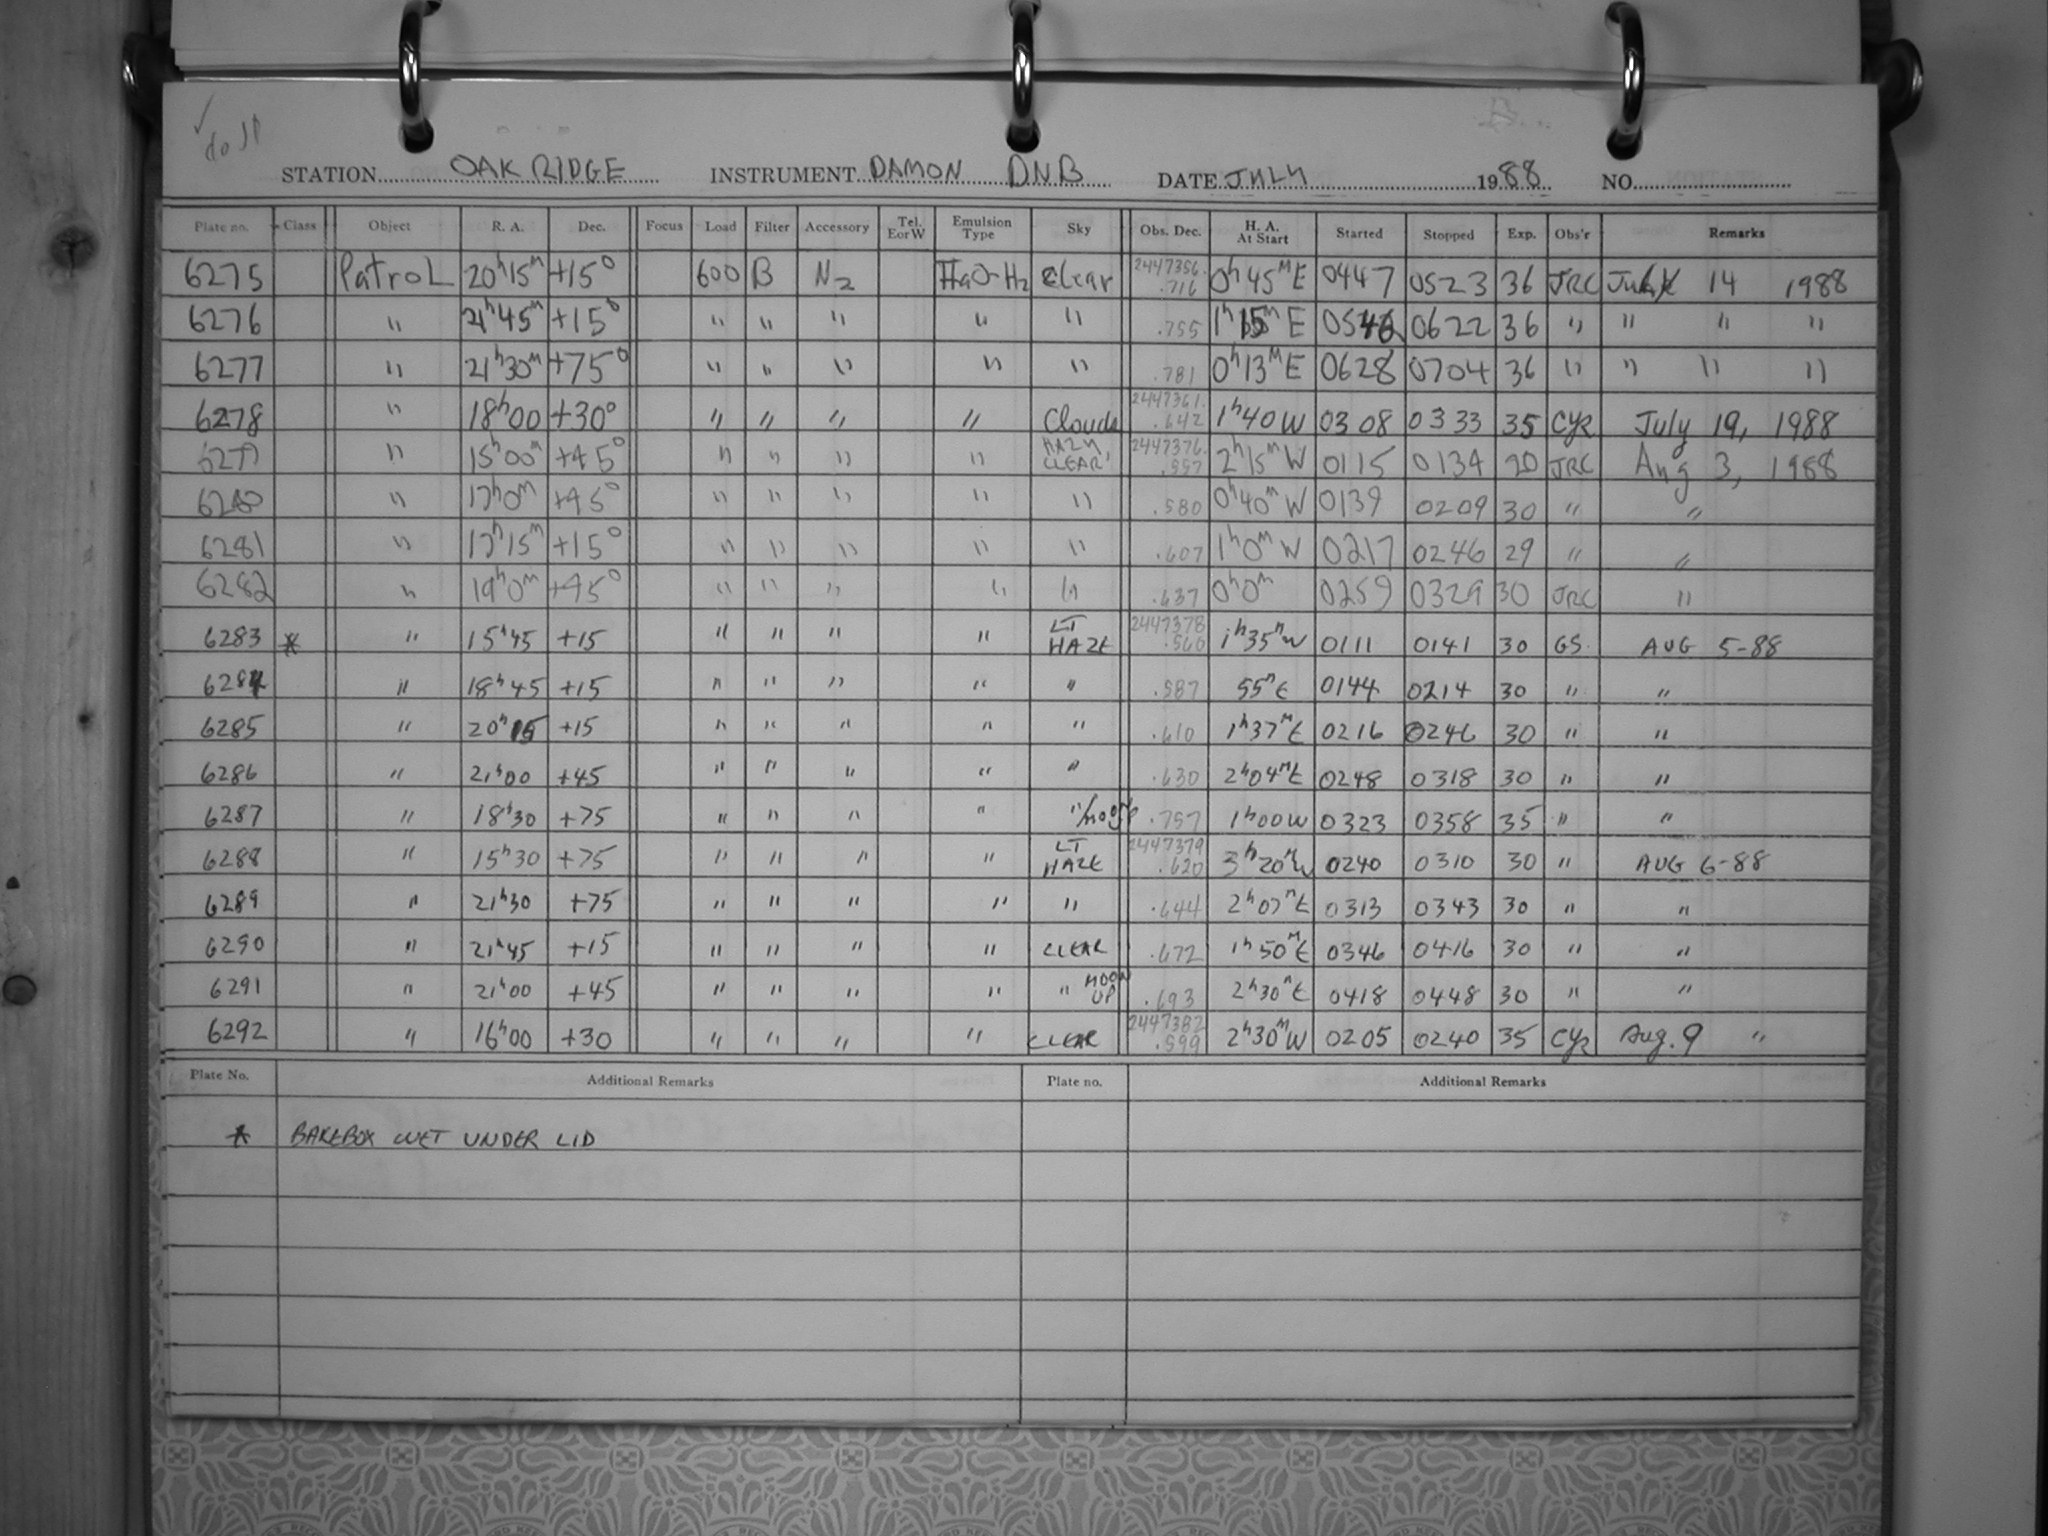 ✓
STATION OAK RIDGE INSTRUMENT DAMON DNB DATE JULY 1988 NO.
Plate no. Class Object R. A. Dec. Focus Load Filter Accessory Tel. E or W Emulsion Type Sky Obs. Dec. H. A. At Start Started Stopped Exp. Obs'r Remarks
6275 Patrol 20h15m +15° 600 B N2 IIaO-H2 Clear 2447356.716 0h45mE 0447 0523 36 JRC July 14 1988
6276 " 21h45m +15° " " " " " .755 1h15mE 0546 0622 36 " " " "
6277 " 21h30m +75° " " " " " .781 0h13mE 0628 0704 36 " " " "
6278 " 18h00 +30° " " " " Clouds 2447361.642 1h40W 0308 0333 35 CYR July 19, 1988
6279 " 15h00m +45° " " " " HAZY, CLEAR 2447376.557 2h15mW 0115 0134 20 JRC Aug 3, 1988
6280 " 17h0m +45° " " " " " .580 0h40mW 0139 0209 30 " "
6281 " 17h15m +15° " " " " " .607 1h0mW 0217 0246 29 " "
6282 " 19h0m +45° " " " " " .637 0h0m 0259 0329 30 JRC "
6283 * " 15h45 +15 " " " " LT HAZE 2447378.560 1h35mW 0111 0141 30 GS. AUG 5-88
6284 " 18h45 +15 " " " " " .587 55mE 0144 0214 30 " "
6285 " 20h15 +15 " " " " " .610 1h37mE 0216 0246 30 " "
6286 " 21h00 +45 " " " " " .630 2h04mE 0248 0318 30 " "
6287 " 18h30 +75 " " " " "/moon up .757 1h00W 0323 0358 35 " "
6288 " 15h30 +75 " " " " LT HAZE 2447379.620 3h20mW 0240 0310 30 " AUG 6-88
6289 " 21h30 +75 " " " " " .644 2h07mE 0313 0343 30 " "
6290 " 21h45 +15 " " " " CLEAR .672 1h50mE 0346 0416 30 " "
6291 " 21h00 +45 " " " " " MOON UP .693 2h30mE 0418 0448 30 " "
6292 " 16h00 +30 " " " " CLEAR 2447382.599 2h30mW 0205 0240 35 CYR Aug. 9 "
Plate No. Additional Remarks Plate no. Additional Remarks
* BAKEBOX WET UNDER LID